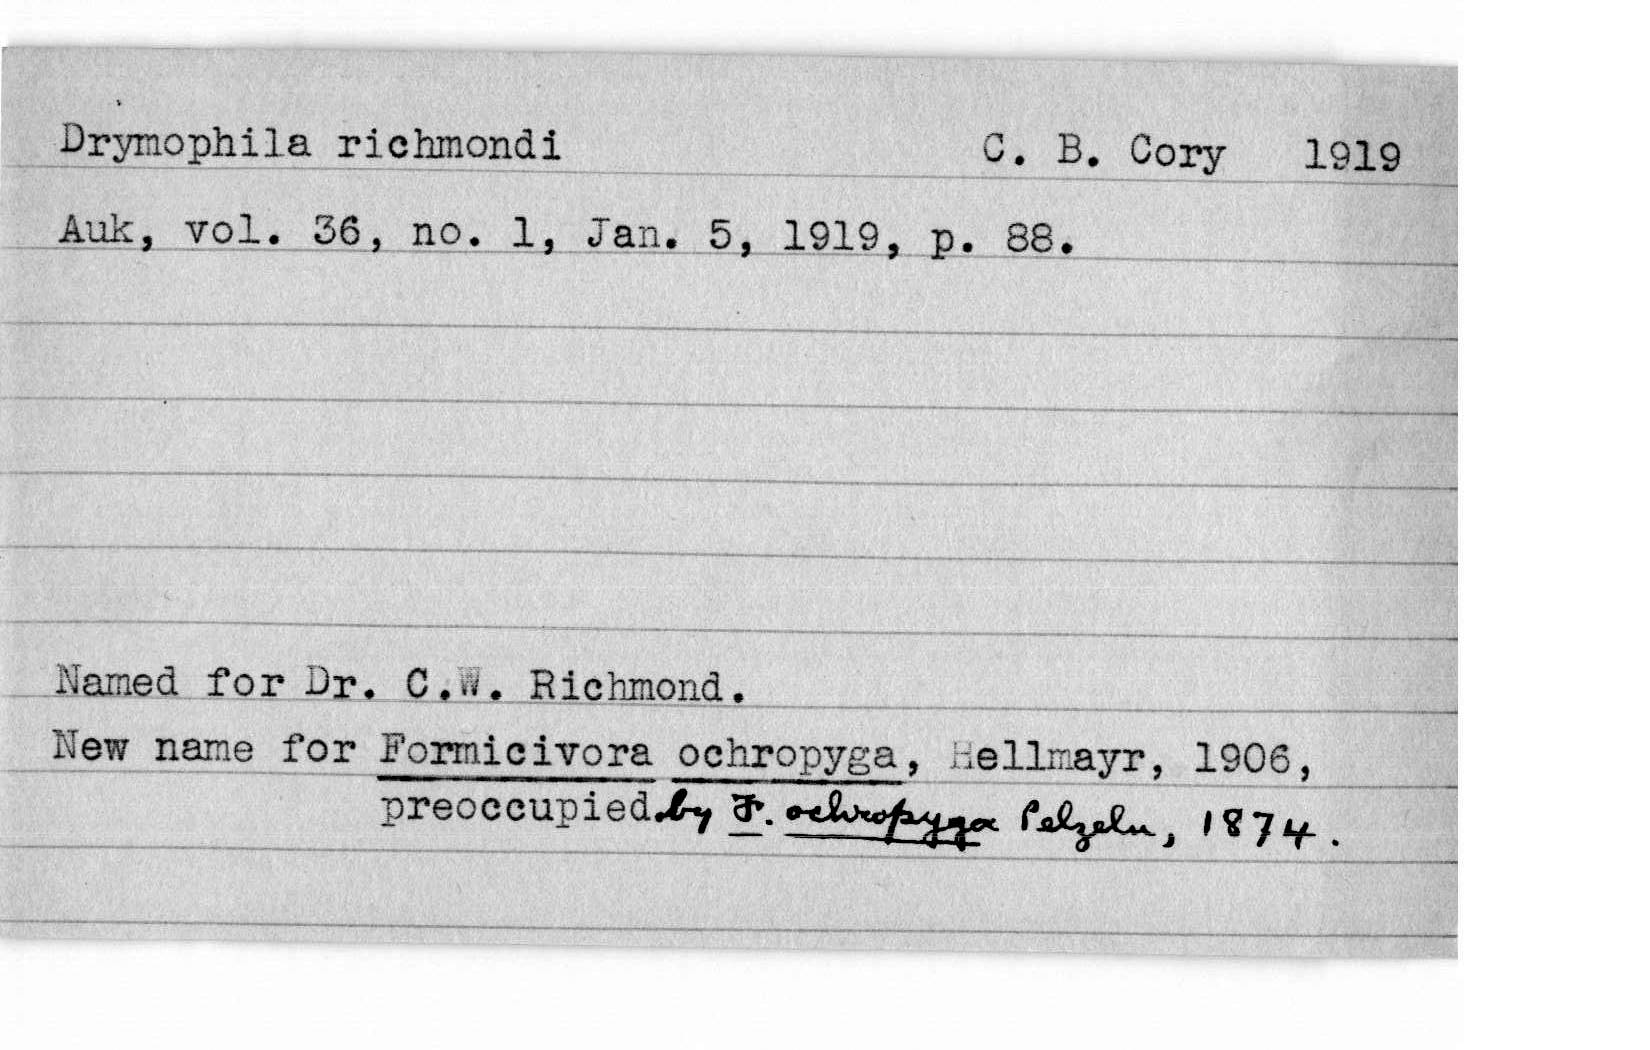 Drymophila richmondi C. B. Cory 1919
Auk, vol. 36, no. 1, Jan. 5, 1919, p. 88.
Named for Dr. C.W. Richmond.
New name for Formicivora ochropyga, Hellmayr, 1906,
preoccupied. by F. ochropyga Pelzeln, 1874.